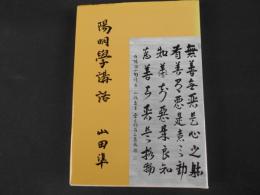 陽明學講話
山田準
無善無惡是心之體
有善有惡是意之動
知善知惡是良知
為善去惡是格物